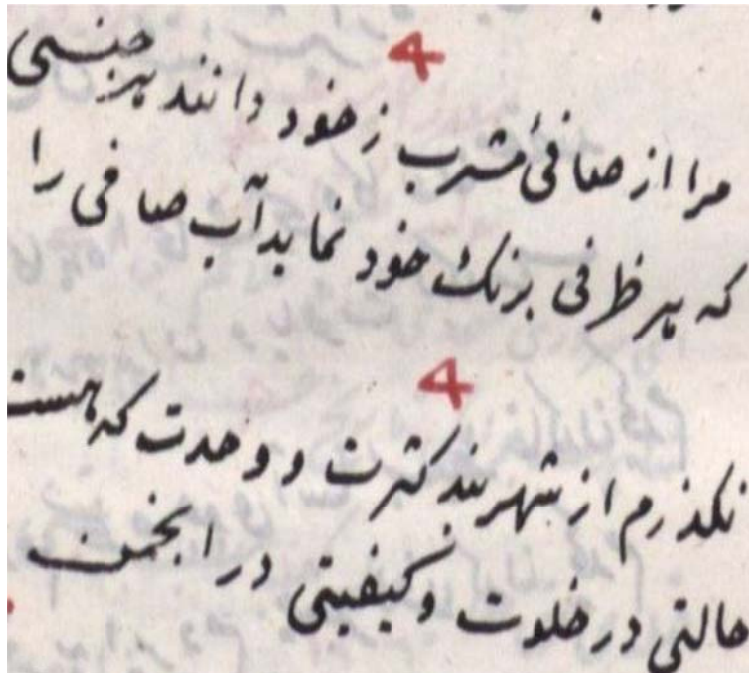 ۴
مرا از صافیٔ مشرب ز خود دانند هر جنسی
که هر ظرفی برنک خود نماید آب صافی را
۴
نکذرم از شهربند کثرت و وحدت که هست
حالتی در خلوت و کیفیتی در انجمن